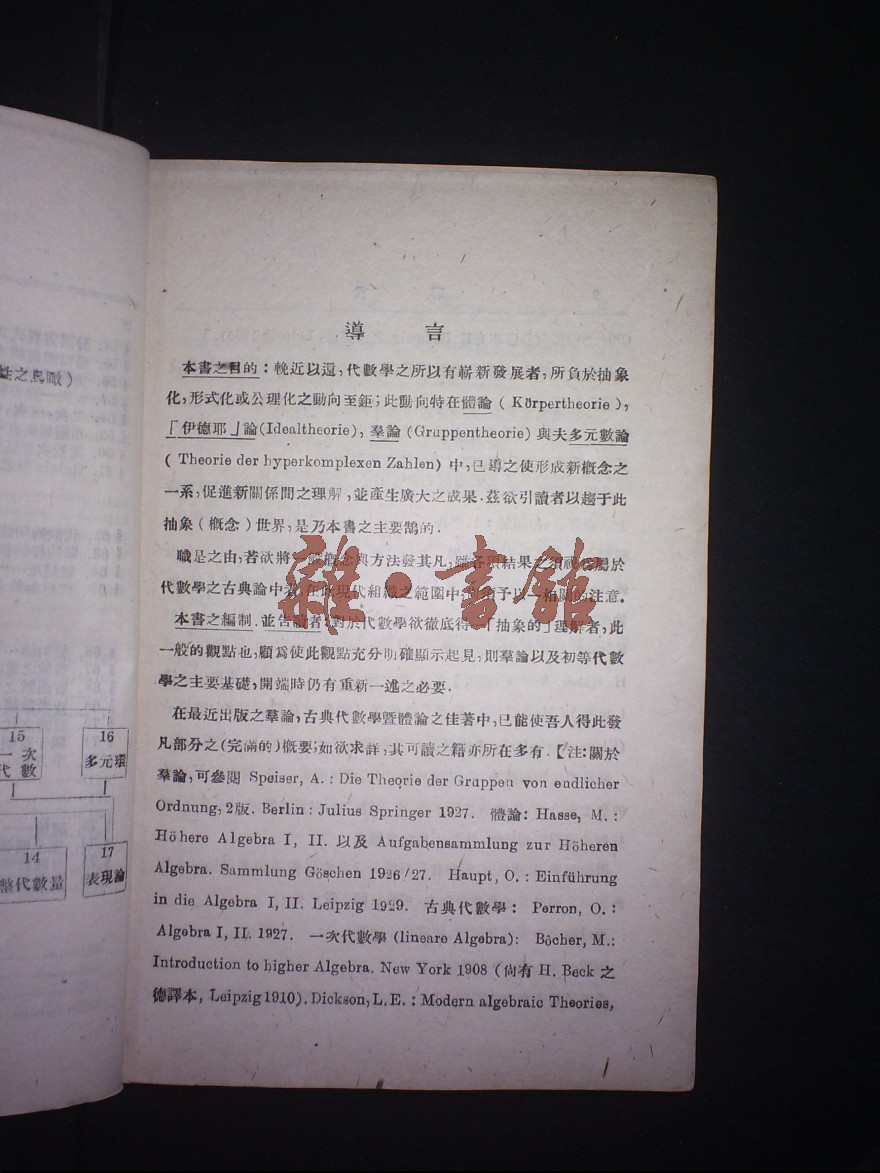 性之鳥瞰)
15
一次
代數
16
多元環
14
整代數量
17
表現論
導 言
本書之目的：輓近以還，代數學之所以有嶄新發展者，所負於抽象
化，形式化或公理化之動向至鉅；此動向特在體論 ( Körpertheorie ),
「伊德耶」論(Idealtheorie), 羣論 (Gruppentheorie) 與夫多元數論
( Theorie der hyperkomplexen Zahlen) 中，已導之使形成新概念之
一系，促進新關係間之理解，並產生廣大之成果．茲欲引讀者以趨于此
抽象（概念）世界，是乃本書之主要鵠的．
職是之由，若欲將一般概念與方法發其凡，雖各項結果之須視爲屬於
代數學之古典論中者，在此現代組織之範圍中，須予以一相關的注意．
本書之編制．並告讀者：對於代數學欲徹底得「抽象的」理解者，此
一般的觀點也，顧爲使此觀點充分明確顯示起見，則羣論以及初等代數
學之主要基礎，開端時仍有重新一述之必要．
在最近出版之羣論，古典代數學暨體論之佳著中，已能使吾人得此發
凡部分之(完滿的)概要；如欲求詳，其可讀之籍亦所在多有．【注：關於
羣論，可參閱 Speiser, A. : Die Theorie der Gruppen von endlicher
Ordnung, 2版. Berlin : Julius Springer 1927. 體論： Hasse, M. :
Höhere Algebra I, II. 以及 Aufgabensammlung zur Höheren
Algebra. Sammlung Göschen 1926/27. Haupt, O. : Einführung
in die Algebra I, II. Leipzig 1929. 古典代數學： Perron, O. :
Algebra I, II. 1927. 一次代數學 (lineare Algebra): Bôcher, M.:
Introduction to higher Algebra. New York 1908 (尙有 H. Beck 之
德譯本, Leipzig 1910). Dickson, L. E. : Modern algebraic Theories,
雜·書館